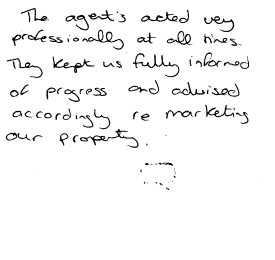 The agent's acted very
professionally at all times.
They kept us fully informed
of progress and advised
accordingly re marketing
our property.